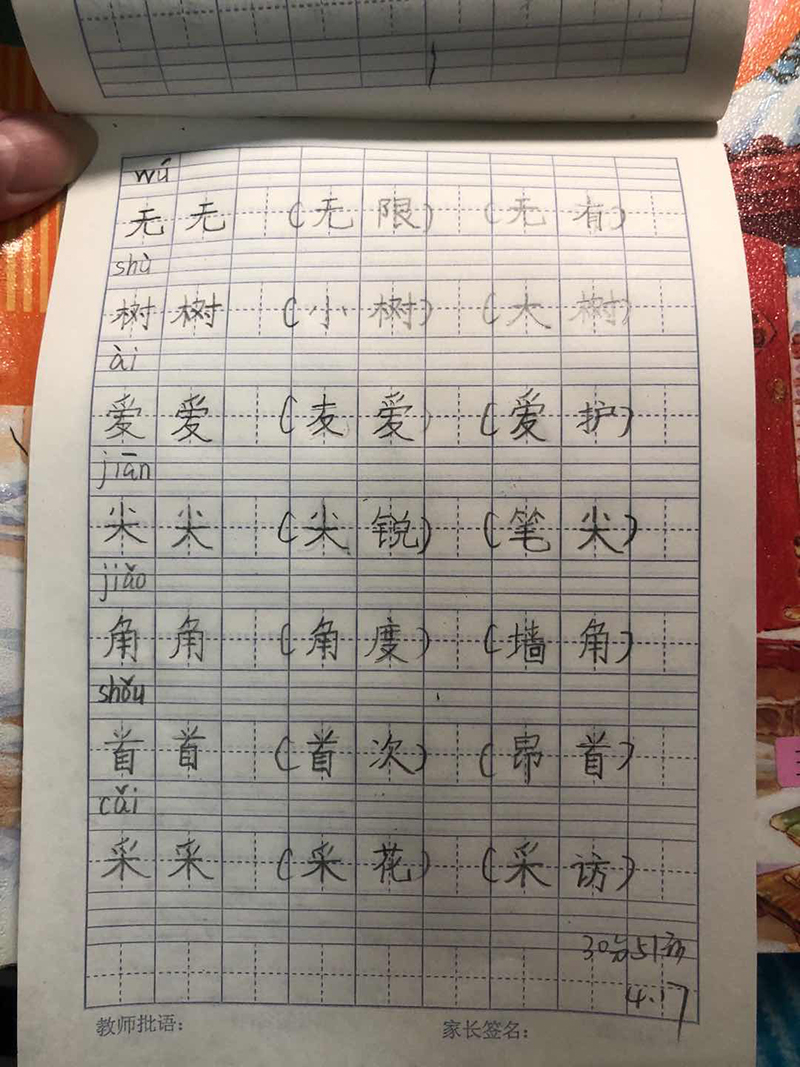 wú
无 无 (无 限) (无 有)
shù
树 树 (小 树) (大 树)
ài
爱 爱 (友 爱) (爱 护)
jiān
尖 尖 (尖 锐) (笔 尖)
jiǎo
角 角 (角 度) (墙 角)
shǒu
首 首 (首 次) (昂 首)
cǎi
采 采 (采 花) (采 访)
30分51秒
4.17
教师批语: 家长签名: